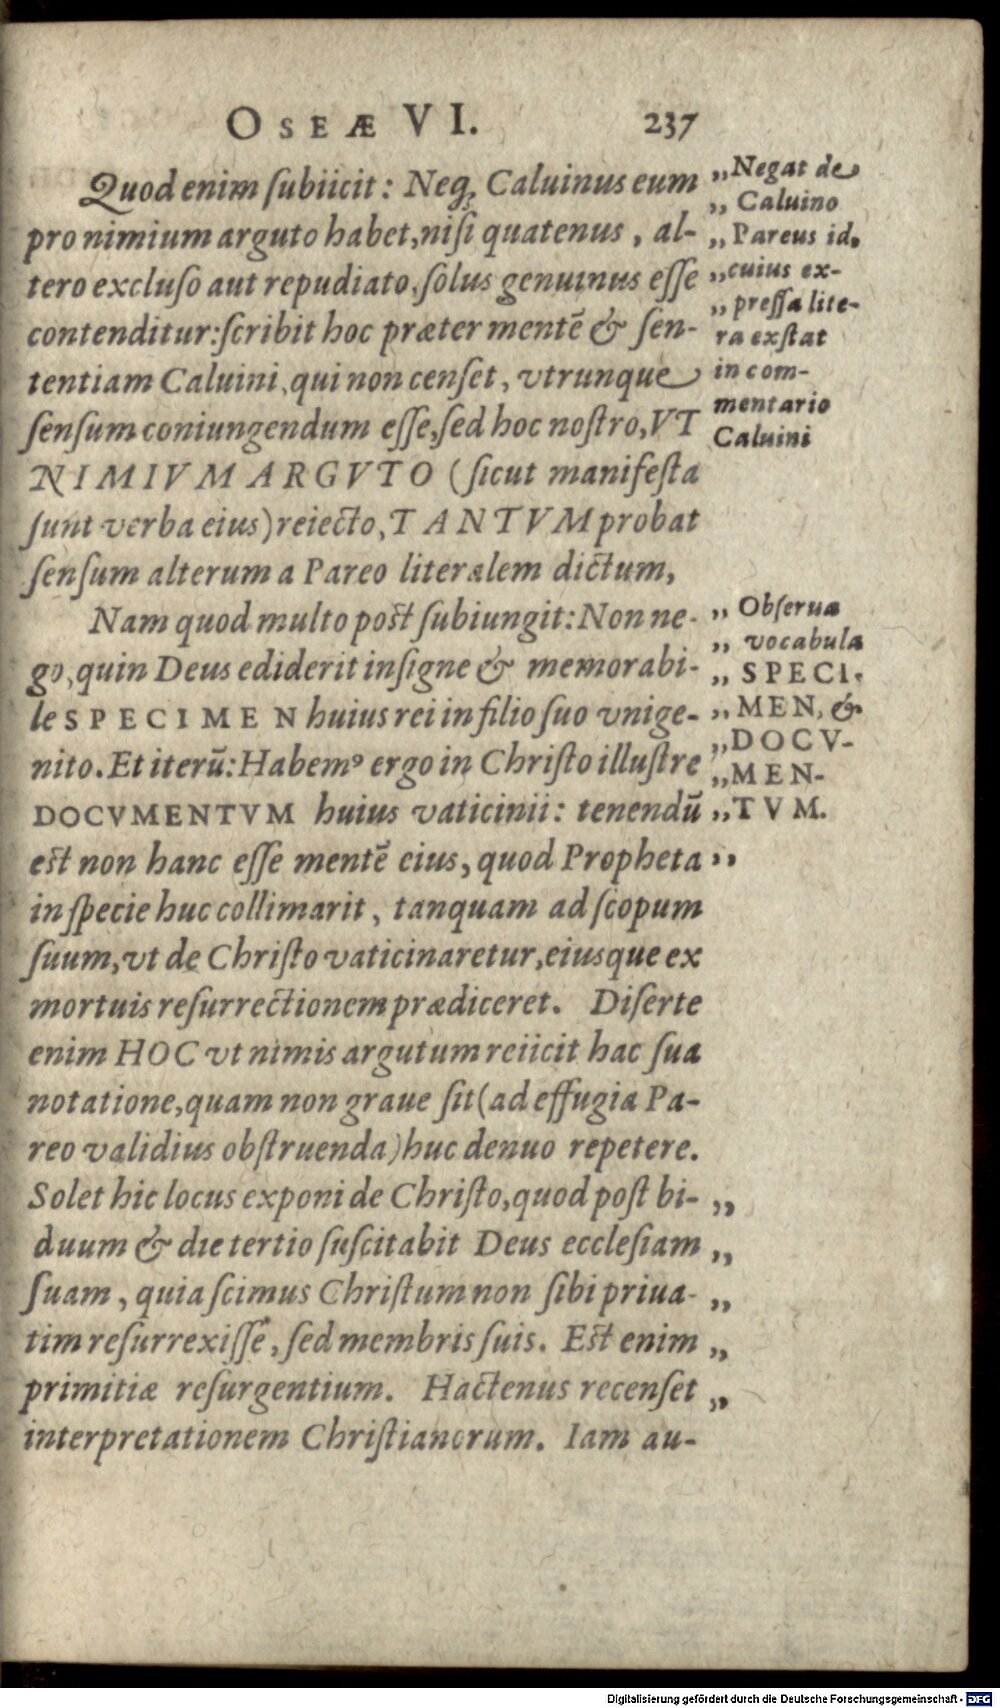 OSEÆ VI. 237
Quod enim ſubiicit: Neq́; Caluinus eum
pro nimium arguto habet, niſi quatenus, al-
tero excluſo aut repudiato, ſolus genuinus eſſe
contenditur: ſcribit hoc præter mentē & ſen-
tentiam Caluini, qui non cenſet, vtrunque
ſenſum coniungendum eſſe, ſed hoc noſtro, VT
NIMIVM ARGVTO (ſicut manifeſta
ſunt verba eius) reiecto, TANTVM probat
ſenſum alterum a Pareo literalem dictum,
Nam quod multo poſt ſubiungit: Non ne-
go, quin Deus ediderit inſigne & memorabi-
le SPECIMEN huius rei in filio ſuo vnige-
nito. Et iterū: Habemꝰ ergo in Chriſto illuſtre
DOCVMENTVM huius vaticinii: tenendū
eſt non hanc eſſe mentē eius, quod Propheta „
in ſpecie huc collimarit, tanquam ad ſcopum
ſuum, vt de Chriſto vaticinaretur, eiusque ex
mortuis reſurrectionem prædiceret. Diſerte
enim HOC vt nimis argutum reiicit hac ſua
notatione, quam non graue ſit (ad effugia Pa-
reo validius obſtruenda) huc denuo repetere.
Solet hic locus exponi de Chriſto, quod poſt bi- „
duum & die tertio ſuſcitabit Deus eccleſiam „
ſuam, quia ſcimus Chriſtum non ſibi priua- „
tim reſurrexiſſe, ſed membris ſuis. Eſt enim „
primitiæ reſurgentium. Hactenus recenſet „
interpretationem Chriſtianorum. Iam au-
„Negat de
„ Caluino
„ Pareus id,
„cuius ex-
„preſſa lite-
ra exſtat
in com-
mentario
Caluini
„ Obſerua
„ vocabula
„ SPECI-
„ MEN, &
„DOCV-
„MEN-
„TVM.
Digitalisierung gefördert durch die Deutsche Forschungsgemeinschaft - DFG